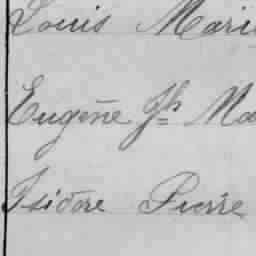 Louis Mari
Eugène Jh Ma
Isidore Pierre